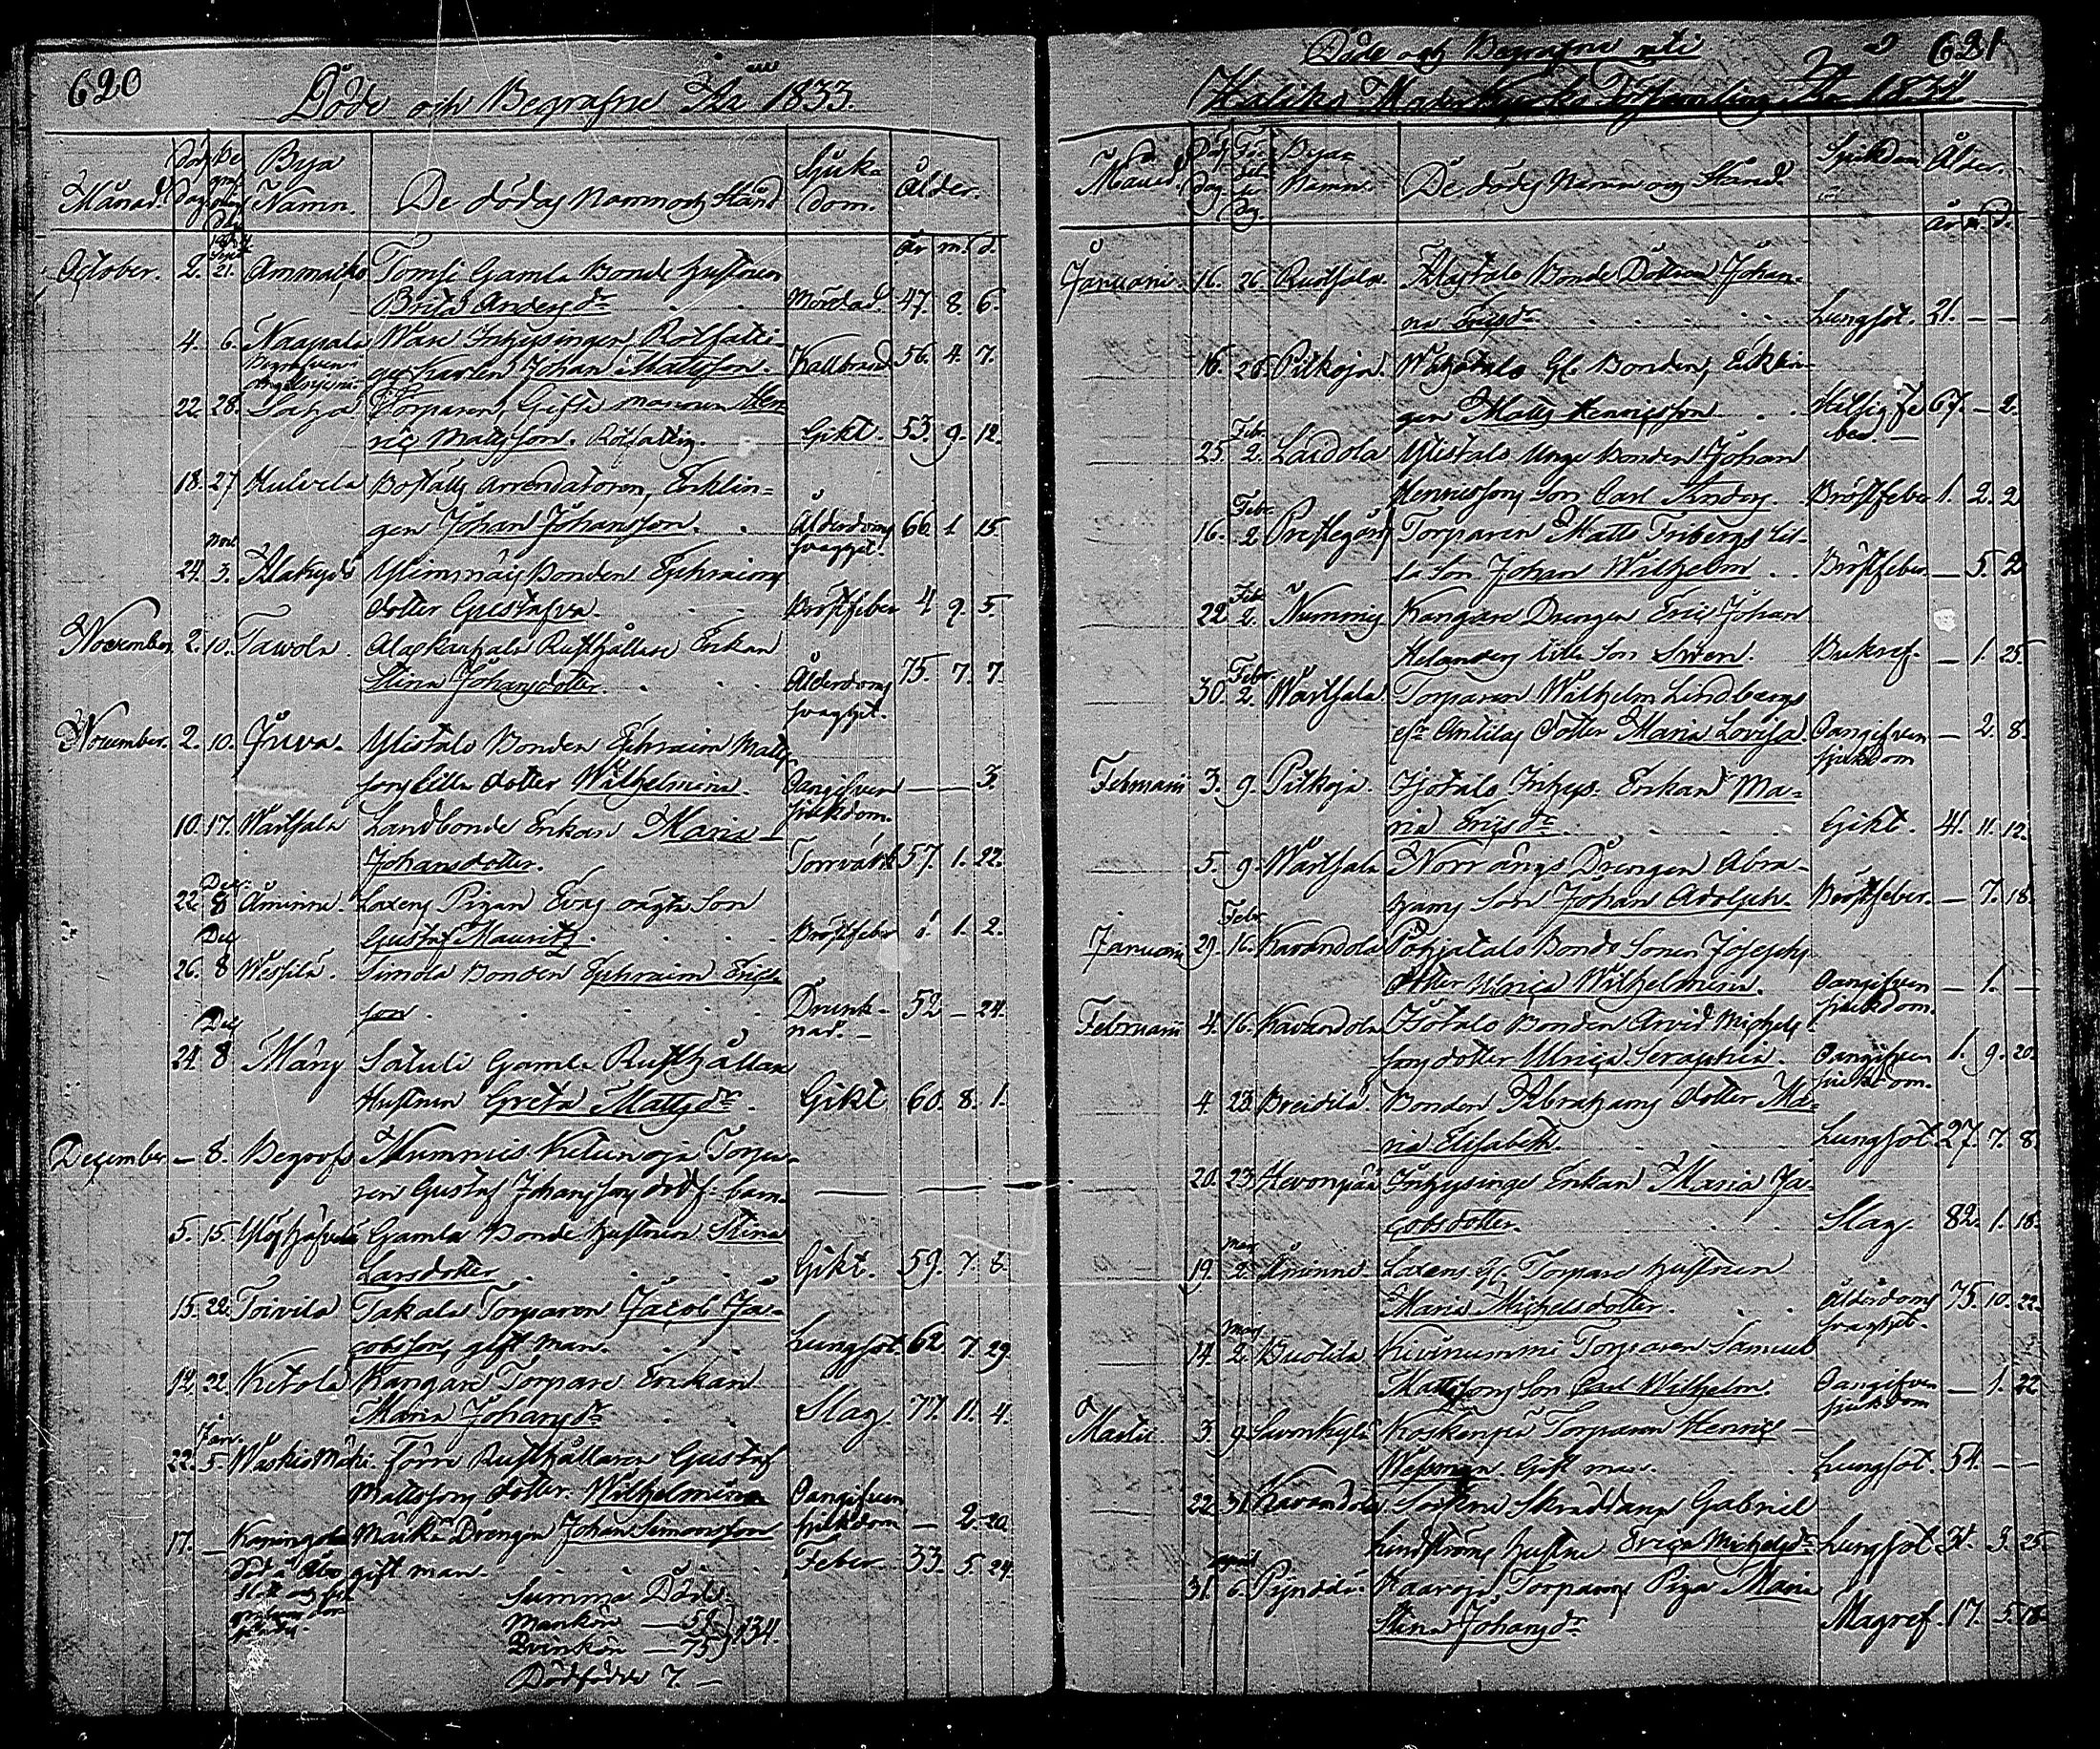 620
Döde och Begrafne År 1833.
Månad. Död Dag Be graf Bya Namn. De dödas Namn och Stånd Sjuk- dom. Ålder.
år m. d.
October. 2. 21. Ammaiko Tomsi Gamla Bonde hustrun
Brita Anders dr Mördad. 47. 8. 6.
4. 6. Naapala Inhysingen Rotfatti-
ge Karlen Johan Mattsson. Kallbrand 56. 4. 7.
22 28. Torparen, Gifta mannen Hen-
ric Mattsson. Rotfattig. Gikt. 53. 9. 12.
18. 27 Hulvela Boställs Arrendatoren, Enklin-
gen Johan Johansson. Ålderdoms 66 1 15.
svaghet.
Nov.
24. 3. Alakylä Bonden Ephraims
dotter Gustafva. Bröstfeber 4 9. 5
November. 2. 10. Tavola. Rusthållare Enkan
Stina Johansdotter. Ålderdoms 75. 7. 7
svaghet.
November. 2. 10. Juva. Ylistalo Bonden Ephraim Matts
sons lilla dotter Wilhelmina. Oangifven — — 3.
sjukdom.
10. 17. Wartsala Landbonde Enkan Maria
Johansdotter. Torrvärk 57. 1. 22.
Dec.
22. 8 Åminne. Laxens Pigan Evas oägta Son
Gustaf Mauritz. Bröstfeber 1. 1. 2.
Dec
26. 8 Simola Bonden Ephraim Erics
son Drunk- 52 — 24.
nad. —
Dec
24 8 Märy Satuli Gamla Rusthållare
Hustrun Greta Matts dr. Gikt 60. 8. 1.
December — 8. Begrofs Nummis Torpa-
ren Gustaf Johanssons dödf. barn — — —
5. 15. Gamla Bonde hustrun Stina
Larsdotter Gikt. 59. 7. 8.
15. 22. Toivila Takala Torparen Jacob Ja-
cobsson, gift man. Lungsot. 62 7. 29.
14. 22. Ketola Kangare Torpare Enkan
Maria Johans dr Slag. 77. 11. 4.
Jan.
22. 5. Waskio Mäki. Förre Rusthållaren Gustaf
Mattssons dotter Wilhelmina Oangifven
sjukdom — 2. 20.
17. — Drengen Johan Simonsson
gift man. Feber 33. 5. 24.
död å Åbo
Slott och
Summa Döde.
Mankön — 59
Qvinkön — 75 134.
Dödfödde 7. —
621
Döde och Begrafne uti
Haliko Moderkyrko Församling År 1834
Månad. Död Dag Byar Namn. De dödas Namn och Stånd. Sjukdom Ålder.
år m. d.
Januarii. 16. 26. Alastalo Bonde Dottren Johan-
na Ericsdr Lungsot. 21. — —
16. 26. Pitkoja. Gl. Bonden, Enklin-
gen Matts Henricsson Hetsig fe 67. — 2.
ber. —
Feb.
25 2. Laidola Ylistalo Unge Bonden Johan
Henricssons Son Carl Bröstfeber 1. 2. 2
Febr.
16. 2 Prestegård Torparen Matts Fribergs lil-
la Son Johan Wilhelm Bröstfeber — 5. 2
Febr
22 2. Nummis Kangare Drengen Eric Johan
Helanders lilla Son Sven. Bukref. — 1. 25.
Febr.
30. 2. Wartsala Torparen Wilhelm Lindbergs
Antilas dotter Maria Lovisa. Oangifven — 2. 8.
sjukdom
Februarii 3. 9. Pitkoja. Inhys. Enkan Ma-
ria Erics dr Gikt. 41. 11. 12.
5. 9. Wartsala Norrängs Drengen Abra-
hams Son Johan Adolph. Bröstfeber. — 7. 18.
Febr
Januarii 29. 16. Kavandola Pohjatalo Bonde Sonen Josephs
dotter Ulrica Wilhelmina. Oangifven — 1. —
sjukdom.
Februarii 4. 16. Kavandola Isotalo Bonden Arvid Michels
sons dotter Ulrica Seraphia. Oangifven 1. 9. 20.
sjukdom.
4. 23. Breidilä. Bonden Abrahams dotter Ma-
ria Elisabeth. Lungsot. 27. 7. 8.
20. 23 Hevonpää Inhysinge Enkan Maria Ja-
cobsdotter. Slag. 82. 1. 18.
Mar
19. 2. Åminne. Laxens Gl. Torpare hustrun
Maria Michelsdotter. Ålderdoms 75. 10. 22.
svaghet.
Mars
14. 2. Buotila Kivinummi Torparen Samuel
Mattssons Son Carl Wilhelm. Oangifven — 1. 22
sjukdom
Martii 3 9 Koskenpä Torparen Henric
Wessman. Gift man. Lungsot. 54. — —
22. 31. Kavandola Sockne Skräddaren Gabriel
Lindströms hustru Erica Michels dr. Lungsot. 31. 3. 25.
April
31. 6. Torparens Piga Maria
Stina Johans dr Magref. 17. 5. 18.